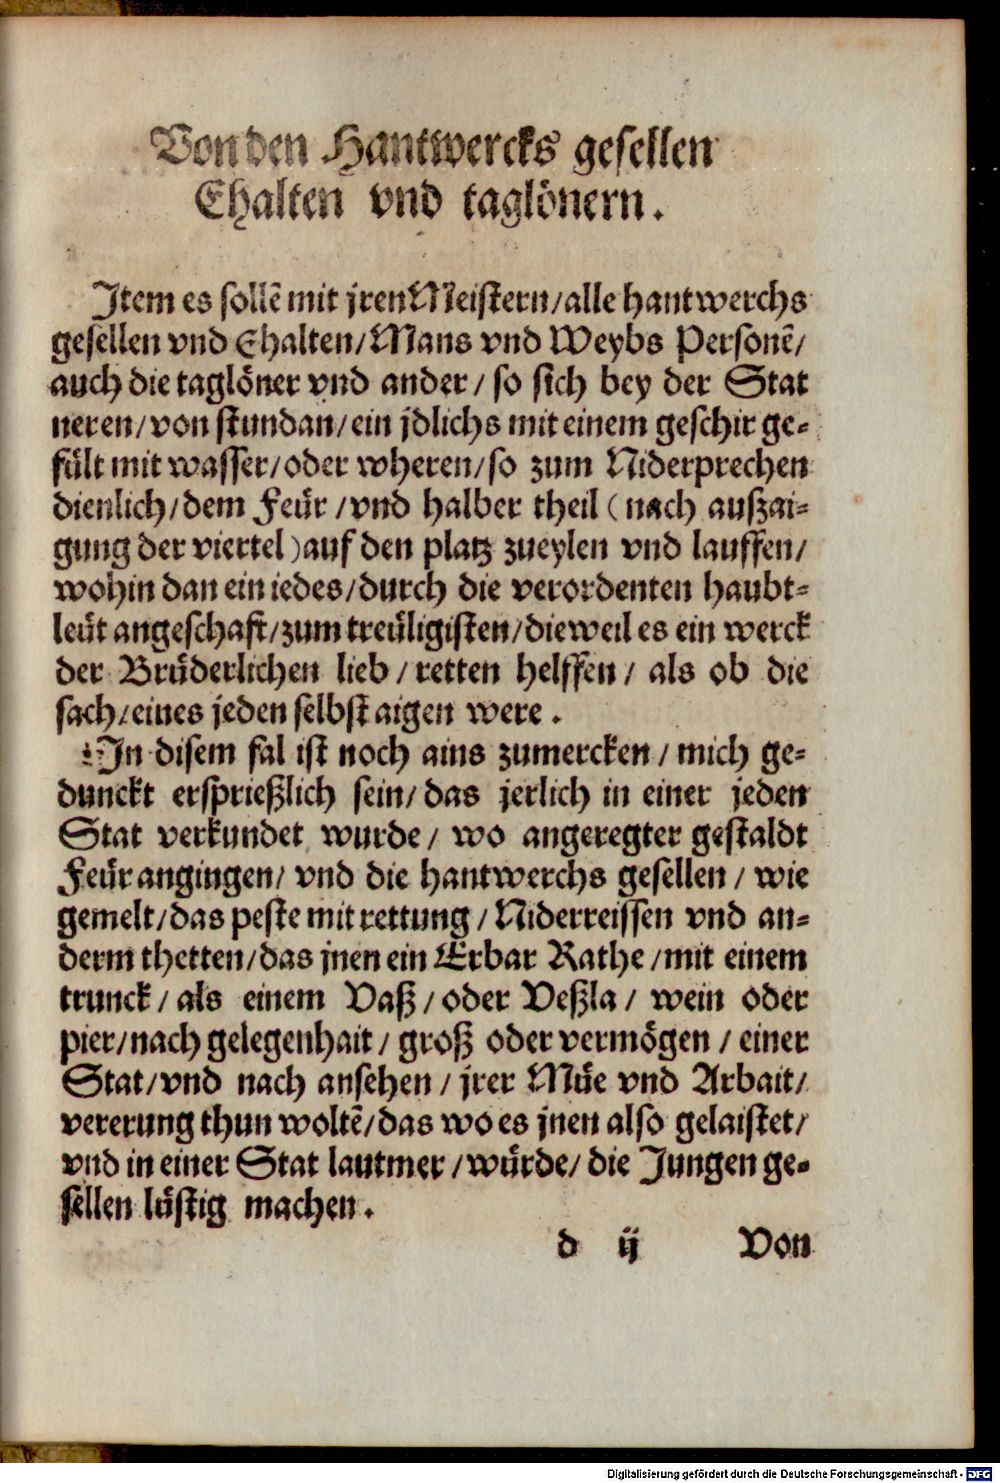 Von den Hantwercks gesellen
Ehalten vnd taglönern.
Item es sollē mit jren Meistern/alle hantwerchs
gesellen vnd Ehalten/Mans vnd Weybs Personē/
auch die taglöner vnd ander/so sich bey der Stat
neren/von stundan/ein jdlichs mit einem geschir ge-
fült mit wasser/oder wheren/so zum Niderprechen
dienlich/dem Feür/vnd halber theil (nach auszai-
gung der viertel) auf den platz zueylen vnd lauffen/
wohin dan ein iedes/durch die verordenten haubt-
leüt angeschaft/zum treüligisten/dieweil es ein werck
der Brüderlichen lieb/retten helffen/als ob die
sach/eines jeden selbst aigen were.
In disem fal ist noch ains zumercken/mich ge-
dunckt ersprießlich sein/das jerlich in einer jeden
Stat verkundet wurde/wo angeregter gestaldt
Feür angingen/vnd die hantwerchs gesellen/wie
gemelt/das peste mit rettung/Niderreissen vnd an-
derm thetten/das jnen ein Erbar Rathe/mit einem
trunck/als einem Vaß/oder Veßla/wein oder
pier/nach gelegenhait/groß oder vermögen/einer
Stat/vnd nach ansehen/jrer Müe vnd Arbait/
vererung thun woltē/das wo es jnen also gelaistet/
vnd in einer Stat lautmer/würde/die Jungen ge-
sellen lüstig machen.
d ij Von
Digitalisierung gefördert durch die Deutsche Forschungsgemeinschaft - DFG